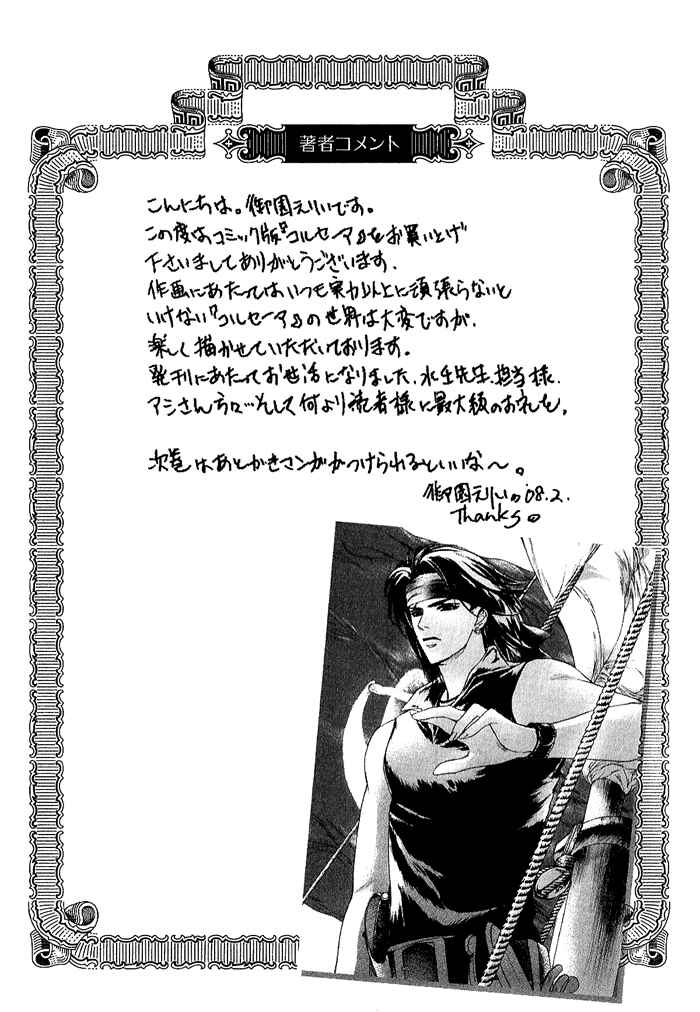 著者コメント
こんにちは。御園えりいです。
この度はコミック版『コルセーア』をお買い上げ
下さいましてありがとうございます.
作画にあたってはいつも実力以上に頑張らないと
いけない『コルセーア』の世界は大変ですが、
楽しく描かせていただいております。
発刊にあたってお世話になりました、水壬先生、担当様、
アシさん方々…そして何より読者様に最大級のお礼を。
次巻はあとがきマンガがつけられるといいな〜。
御園えりい '08.2.
Thanks